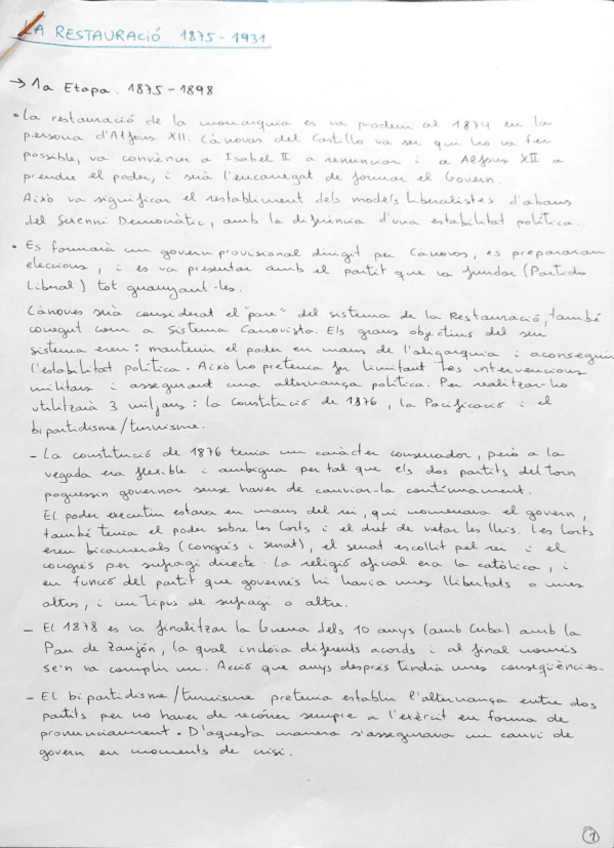 LA RESTAURACIÓ 1875-1931
→ 1a Etapa. 1875-1898
• La restauració de la monarquia es va produir al 1874 en la
persona d'Alfons XII. Cànovas del Castillo va ser qui ho va fer
possible, va convèncer a Isabel II a renunciar i a Alfons XII a
prendre el poder, i serà l'encarregat de formar el Govern.
Això va significar el restabliment dels models liberalistes d'abans
del Sexenni Democràtic, amb la diferència d'una estabilitat política.
• Es formarà un govern provisional dirigit per Cànovas, es prepararan
eleccions, i es va presentar amb el partit que va fundar (Partido
Liberal) tot guanyant-les.
Cànovas serà considerat el "pare" del sistema de la Restauració, també
conegut com a Sistema Canovista. Els grans objectius del seu
sistema eren: mantenir el poder en mans de l'oligarquia i aconseguir
l'estabilitat política. Això ho pretenia fer limitant les intervencions
militars i assegurant una alternança política. Per realitzar-ho
utilitzarà 3 mitjans: la Constitució de 1876, la Pacificació i el
bipartidisme/turnisme.
- La constitució de 1876 tenia un caràcter conservador, però a la
vegada era flexible i ambigua per tal que els dos partits del torn
poguessin governar sense haver de canviar-la contínuament.
El poder executiu estava en mans del rei, qui nomenava el govern,
també tenia el poder sobre les Corts i el dret de vetar les lleis. Les Corts
eren bicamerals (congrés i senat), el senat escollit pel rei i el
congrés per sufragi directe. La religió oficial era la catòlica, i
en funció del partit que governés hi havia unes llibertats o unes
altres, i un tipus de sufragi o altre.
- El 1878 es va finalitzar la Guerra dels 10 anys (amb Cuba) amb la
Pau de Zanjón, la qual incloïa diferents acords i al final només
se'n va complir un. Acció que anys després tindrà unes conseqüències.
- El bipartidisme/turnisme pretenia establir l'alternança entre dos
partits per no haver de recórrer sempre a l'exèrcit en forma de
pronunciament. D'aquesta manera s'assegurava un canvi de
govern en moments de crisi.
1